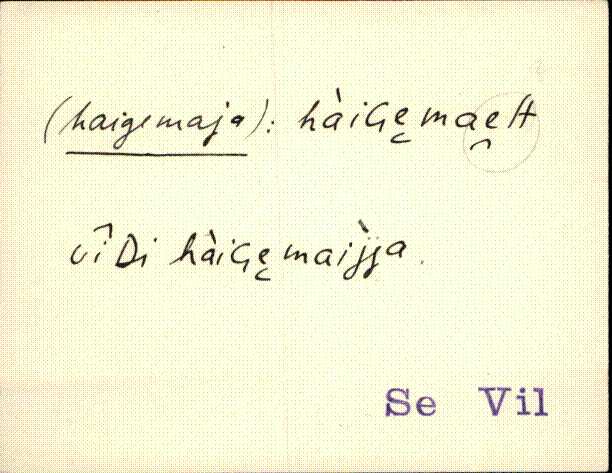 (haigemaja): hàiGe̮mae̮tt
vîDi hàiGe̮maìj̀ja.
Se Vil